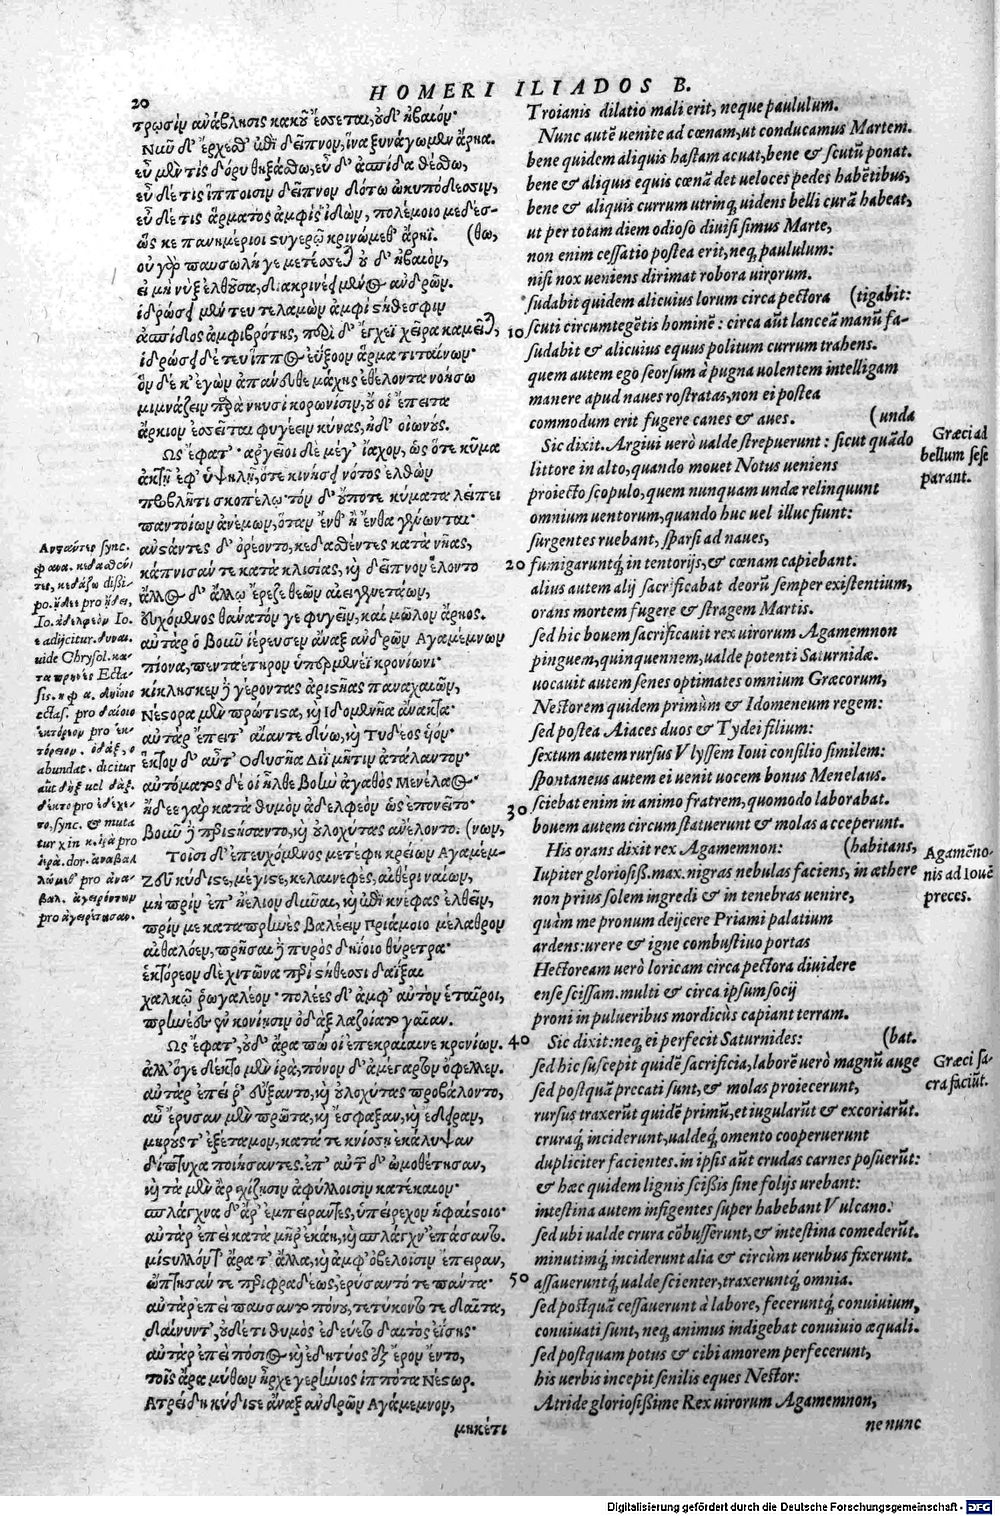 20
HOMERI ILIADOS B.
τρωσὶν ἀνάβλησις κακοῦ ἔσσεται, οὐδ' ἠβαιόν·
Νῦν δ' ἔρχεσθ' ἐπὶ δεῖπνον, ἵνα ξυνάγωμεν ἄρηα.
εὖ μέν τις δόρυ θηξάσθω, εὖ δ' ἀσπίδα θέσθω,
εὖ δέ τις ἵπποισιν δεῖπνον δότω ὠκυπόδεσσιν,
εὖ δέ τις ἅρματος ἀμφὶς ἰδὼν, πολέμοιο μεδέσ-
ὥς κε πανημέριοι στυγερῷ κρινώμεθ' ἄρηϊ. (θω,
οὐ γὰρ παυσωλή γε μετέσσεται οὐδ' ἠβαιὸν,
εἰ μὴ νὺξ ἐλθοῦσα, διακρινέει μένος ἀνδρῶν.
ἱδρώσει μέν τευ τελαμὼν ἀμφὶ στήθεσφιν
ἀσπίδος ἀμφιβρότης, περὶ δ' ἔγχεϊ χεῖρα καμεῖται,
ἱδρώσει δέ τευ ἵππος ἐΰξοον ἅρμα τιταίνων·
ὃν δέ κ' ἐγὼν ἀπάνευθε μάχης ἐθέλοντα νοήσω
μιμνάζειν παρὰ νηυσὶ κορωνίσιν, οὔ οἱ ἔπειτα
ἄρκιον ἐσσεῖται φυγέειν κύνας, ἠδ' οἰωνούς.
Ὣς ἔφατ'· ἀργεῖοι δὲ μέγ' ἴαχον, ὡς ὅτε κῦμα
ἀκτῇ ἐφ' ὑψηλῇ, ὅτε κινήσει νότος ἐλθὼν
προβλῆτι σκοπέλῳ· τὸν δ' οὔποτε κύματα λείπει
παντοίων ἀνέμων, ὅταν ἔνθ' ἢ ἔνθα γένωνται·
ἀνστάντες δ' ὀρέοντο, κεδασθέντες κατὰ νῆας,
κάπνισάν τε κατὰ κλισίας, καὶ δεῖπνον ἕλοντο
ἄλλος δ' ἄλλῳ ἔρεζε θεῶν αἰειγενετάων,
εὐχόμενος θάνατόν γε φυγεῖν, καὶ μῶλον ἄρηος.
αὐτὰρ ὁ βοῦν ἱέρευσεν ἄναξ ἀνδρῶν Ἀγαμέμνων
πίονα, πενταέτηρον ὑπερμενέϊ κρονίωνι·
κίκλησκεν δὲ γέροντας ἀριστῆας παναχαιῶν,
Νέστορα μὲν πρώτιστα, καὶ Ἰδομενῆα ἄνακτα·
αὐτὰρ ἔπειτ' αἴαντε δύω, καὶ Τυδέος υἱόν·
ἕκτον δ' αὖτ' Ὀδυσῆα Διῒ μῆτιν ἀτάλαντον·
αὐτόματος δέ οἱ ἦλθε βοὴν ἀγαθὸς Μενέλαος·
ᾔδεε γὰρ κατὰ θυμὸν ἀδελφεὸν ὡς ἐπονεῖτο·
βοῦν δὲ περιστήσαντο, καὶ οὐλοχύτας ἀνέλοντο. (νων,
Τοῖσι δ' ἐπευχόμενος μετέφη κρείων Ἀγαμέμ-
Ζεῦ κύδιστε, μέγιστε, κελαινεφὲς, αἰθέρι ναίων,
μὴ πρὶν ἐπ' ἠέλιον δῦναι, καὶ ἐπὶ κνέφας ἐλθεῖν,
πρίν με κατὰ πρηνὲς βαλέειν Πριάμοιο μέλαθρον
αἰθαλόεν, πρῆσαι δὲ πυρὸς δηΐοιο θύρετρα·
ἑκτόρεον δὲ χιτῶνα περὶ στήθεσσι δαΐξαι
χαλκῷ ῥωγαλέον· πολέες δ' ἀμφ' αὐτὸν ἑταῖροι,
πρηνέες ἐν κονίῃσιν ὀδὰξ λαζοίατο γαῖαν.
Ὣς ἔφατ', οὐδ' ἄρα πώ οἱ ἐπεκραίαινε κρονίων.
ἀλλ' ὅγε δέκτο μὲν ἱρὰ, πόνον δ' ἀμέγαρτον ὄφελλεν.
αὐτὰρ ἐπεί ῥ' εὔξαντο, καὶ οὐλοχύτας προβάλοντο,
αὖ ἔρυσαν μὲν πρῶτα, καὶ ἔσφαξαν, καὶ ἔδειραν,
μηρούς τ' ἐξέταμον, κατά τε κνίσσῃ ἐκάλυψαν
δίπτυχα ποιήσαντες. ἐπ' αὐτῶν δ' ὠμοθέτησαν,
καὶ τὰ μὲν ἂρ σχίζῃσιν ἀφύλλοισιν κατέκαιον·
σπλάγχνα δ' ἄρ' ἐμπείραντες, ὑπείρεχον ἡφαίστοιο·
αὐτὰρ ἐπεὶ κατὰ μῆρ' ἐκάη, καὶ σπλάγχν' ἐπάσαντο.
μίστυλλόν τ' ἄρα τ' ἄλλα, καὶ ἀμφ' ὀβελοῖσιν ἔπειραν,
ὤπτησάν τε περιφραδέως, ἐρύσαντό τε πάντα·
αὐτὰρ ἐπεὶ παύσαντο πόνου, τετύκοντό τε δαῖτα,
δαίνυντ', οὐδέ τι θυμὸς ἐδεύετο δαιτὸς ἐΐσης·
αὐτὰρ ἐπεὶ πόσιος καὶ ἐδητύος ἐξ ἔρον ἕντο,
τοῖς ἄρα μύθων ἦρχε γερήνιος ἱππότα Νέστωρ.
Ἀτρείδη κύδιστε ἄναξ ἀνδρῶν Ἀγάμεμνον,
μηκέτι
Ἀνστάντες sync.
φ ανα. κεδασθέν
τες, κεδάζω dissi-
po. ᾔδεε pro ᾔδει,
Io. ἀδελφεὸν Io.
ε adijcitur. δῦναι.
uide Chrysol. κα-
τὰ πρηνὲς Ecta-
sis. δηΐοιο
ectas. pro δαΐοιο
ἑκτόρεον pro ἑκ-
τόρειον. ὀδὰξ, ὁ
abundat. dicitur
aūt δὴξ uel δάξ.
δέκτο pro ἐδέχε-
το, sync. & muta
tur χ in κ. ἱρὰ pro
ἱερά. dor.
pro
10
20
30
40
50
Troianis dilatio mali erit, neque paululum.
Nunc autē uenite ad cœnam, ut conducamus Martem.
bene quidem aliquis hastam acuat, bene & scutū ponat.
bene & aliquis equis cœnā det ueloces pedes habētibus,
bene & aliquis currum utrinq; uidens belli curā habeat,
ut per totam diem odioso diuisi simus Marte,
non enim cessatio postea erit, neq; paululum:
nisi nox ueniens dirimat robora uirorum.
sudabit quidem alicuius lorum circa pectora (tigabit:
scuti circumtegētis hominē: circa aūt lanceā manū fa-
sudabit & alicuius equus politum currum trahens.
quem autem ego seorsum à pugna uolentem intelligam
manere apud naues rostratas, non ei postea
commodum erit fugere canes & aues. (unda
Sic dixit. Argiui uerò ualde strepuerunt: sicut quādo
littore in alto, quando mouet Notus ueniens
proiecto scopulo, quem nunquam undæ relinquunt
omnium uentorum, quando huc uel illuc fiunt:
surgentes ruebant, sparsi ad naues,
fumigaruntq; in tentorijs, & cœnam capiebant.
alius autem alij sacrificabat deorū semper existentium,
orans mortem fugere & stragem Martis.
sed hic bouem sacrificauit rex uirorum Agamemnon
pinguem, quinquennem, ualde potenti Saturnidæ.
uocauit autem senes optimates omnium Græcorum,
Nestorem quidem primùm & Idomeneum regem:
sed postea Aiaces duos & Tydei filium:
sextum autem rursus Vlyssem Ioui consilio similem:
spontaneus autem ei uenit uocem bonus Menelaus.
sciebat enim in animo fratrem, quomodo laborabat.
bouem autem circumstatuerunt & molas acceperunt.
His orans dixit rex Agamemnon: (habitans,
Iupiter gloriosiss. max. nigras nebulas faciens, in æthere
non prius solem ingredi & in tenebras uenire,
quàm me pronum deijcere Priami palatium
ardens: urere & igne combustiuo portas
Hectoream uerò loricam circa pectora diuidere
ense scissam. multi & circa ipsum socij
proni in pulueribus mordicùs capiant terram.
Sic dixit: neq; ei perfecit Saturnides: (bat.
sed hic suscepit quidē sacrificia, laborē uerò magnū auge
sed postquā precati sunt, & molas proiecerunt,
rursus traxerūt quidē primū, et iugularūt & excoriarūt.
cruraq; inciderunt, ualdeq; omento cooperuerunt
dupliciter facientes. in ipsis aūt crudas carnes posuerūt:
& hæc quidem lignis scissis sine folijs urebant:
intestina autem infigentes super habebant Vulcano:
sed ubi ualde crura cōbusserunt, & intestina comederūt.
minutimq; inciderunt alia & circùm uerubus fixerunt.
assaueruntq; ualde scienter, traxeruntq; omnia.
sed postquā cessauerunt à labore, feceruntq; conuiuium,
conuiuati sunt, neq; animus indigebat conuiuio æquali.
sed postquam potus & cibi amorem perfecerunt,
his uerbis incepit senilis eques Nestor:
Atride gloriosissime Rex uirorum Agamemnon,
ne nunc
Græci ad
bellum sese
parant.
Agamēno-
nis ad Iouē
preces.
Græci sa-
cra faciūt.
Digitalisierung gefördert durch die Deutsche Forschungsgemeinschaft - DFG